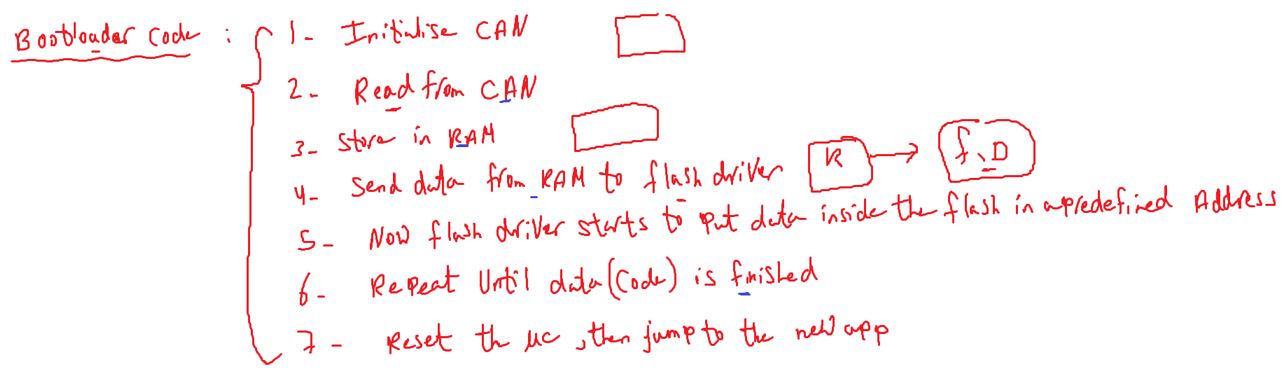 Bootloader Code : 1- Initialise CAN
2- Read from CAN
3- Store in RAM
4- Send data from RAM to flash driver R → f.D
5- Now flash driver starts to put data inside the flash in a predefined Address
6- Repeat Until data (Code) is finished
7- Reset the µc, then jump to the new app